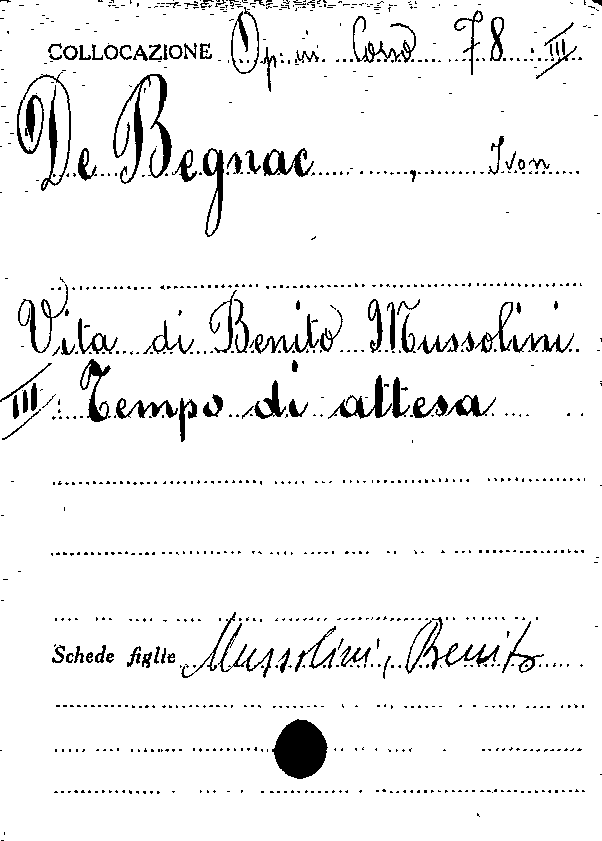 COLLOCAZIONE Op. in Corso 78 III
De Begnac, Ivon
Vita di Benito Mussolini
III: Tempo di attesa
Schede figlie Mussolini, Benito